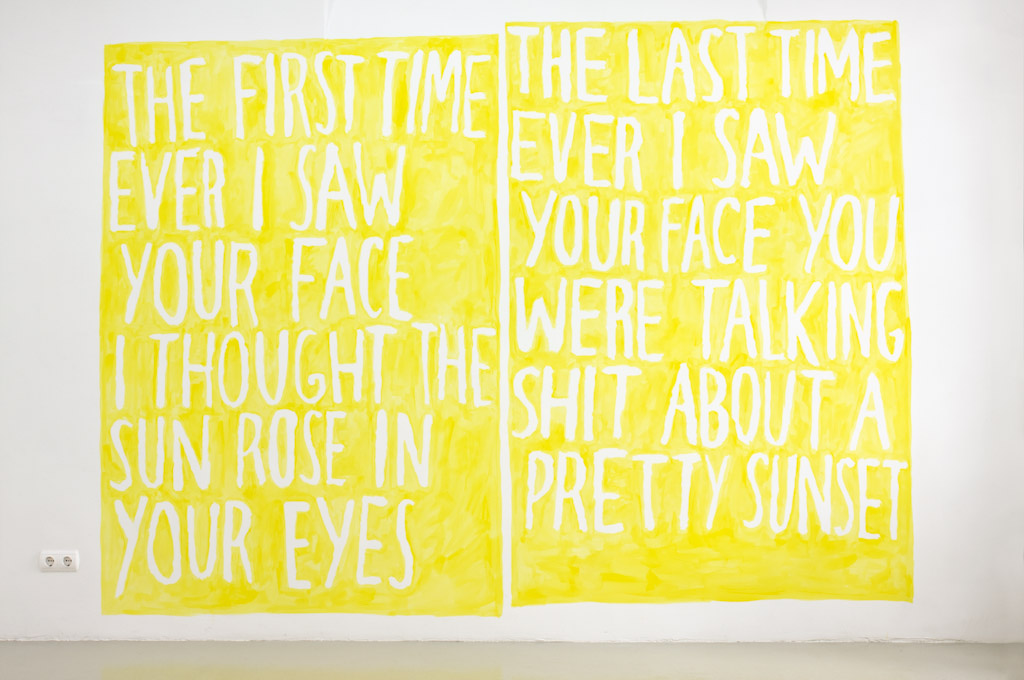 THE FIRST TIME
EVER I SAW
YOUR FACE
I THOUGHT THE
SUN ROSE IN
YOUR EYES
THE LAST TIME
EVER I SAW
YOUR FACE YOU
WERE TALKING
SHIT ABOUT A
PRETTY SUNSET